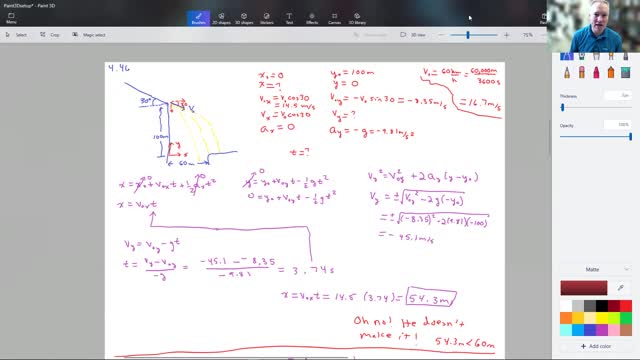 Paint3Dsetup* - Paint 3D
Menu
Brushes
2D shapes
3D shapes
Stickers
Text
Effects
Canvas
3D library
Select
Crop
Magic select
3D view
75%
4.46
x₀=0
x=?
V₀ₓ=V₀cos30
=14.5 m/s
Vₓ=V₀cos30
aₓ=0
y₀=100m
y=0
V₀y=-V₀sin30=-8.35m/s
Vy=?
ay=-g=-9.81m/s²
V₀=60km/h=60,000m/3600s
=16.7m/s
t=?
30°
V₀
100m
y
x
60m
x=x₀+V₀ₓt+½aₓt²
0
0
x=V₀ₓt
y=y₀+V₀yt-½gt²
0
0=y₀+V₀yt-½gt²
Vy²=V₀y²+2ay(y-y₀)
Vy=±√(V₀y²-2g(-y₀))
=±√((-8.35)²-2(9.81)(-100))
=-45.1m/s
Vy=V₀y-gt
t=(Vy-V₀y)/-g=(-45.1--8.35)/-9.81=3.74s
x=V₀ₓt=14.5(3.74)=54.3m
Oh no! He doesn't
make it! 54.3m<60m
Thickness:
Opacity:
100%
Matte
+ Add color